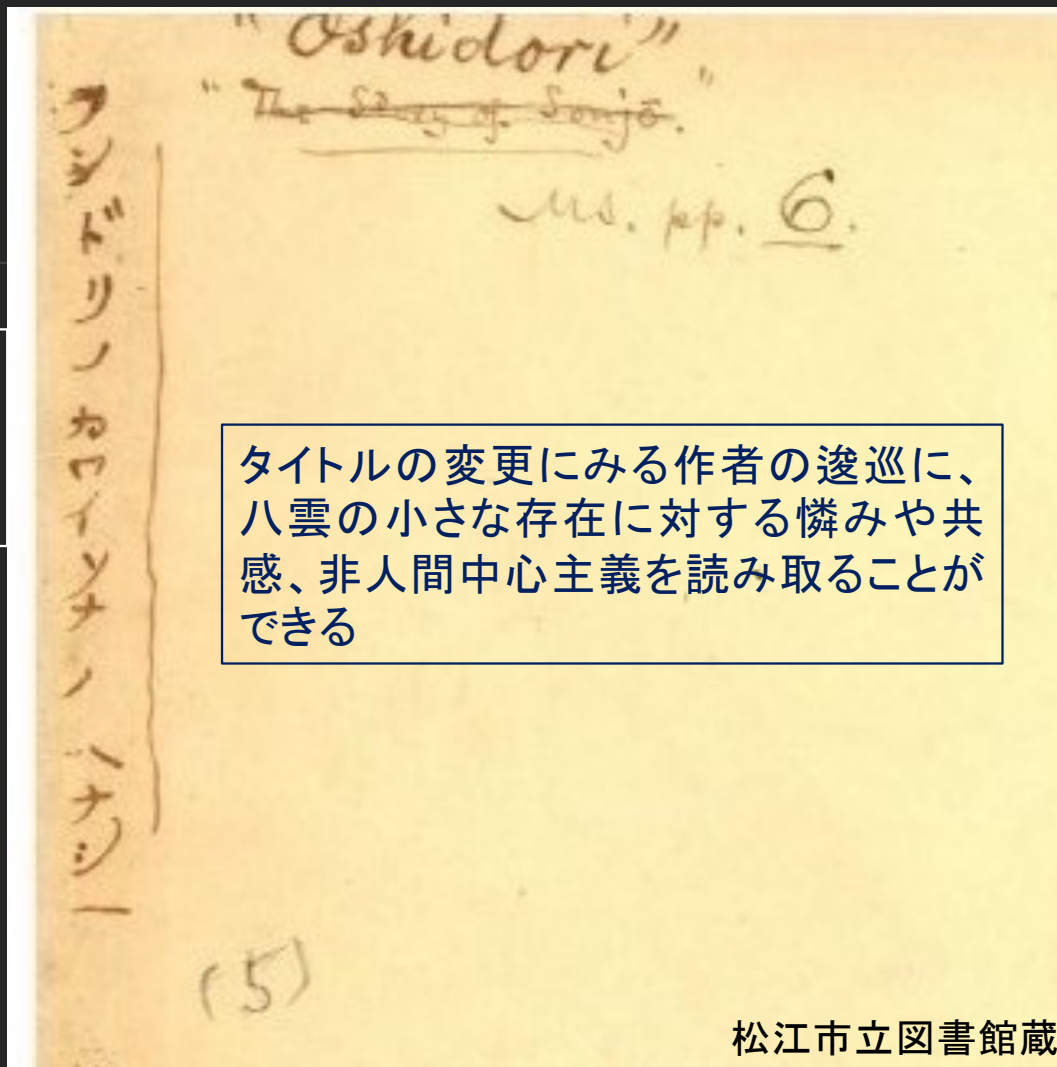 "Oshidori"
"The Story of Sonjō."
Ms. pp. 6.
ヲシドリノカワイソナノ ハナシー
タイトルの変更にみる作者の逡巡に、
八雲の小さな存在に対する憐みや共
感、非人間中心主義を読み取ることが
できる
(5)
松江市立図書館蔵